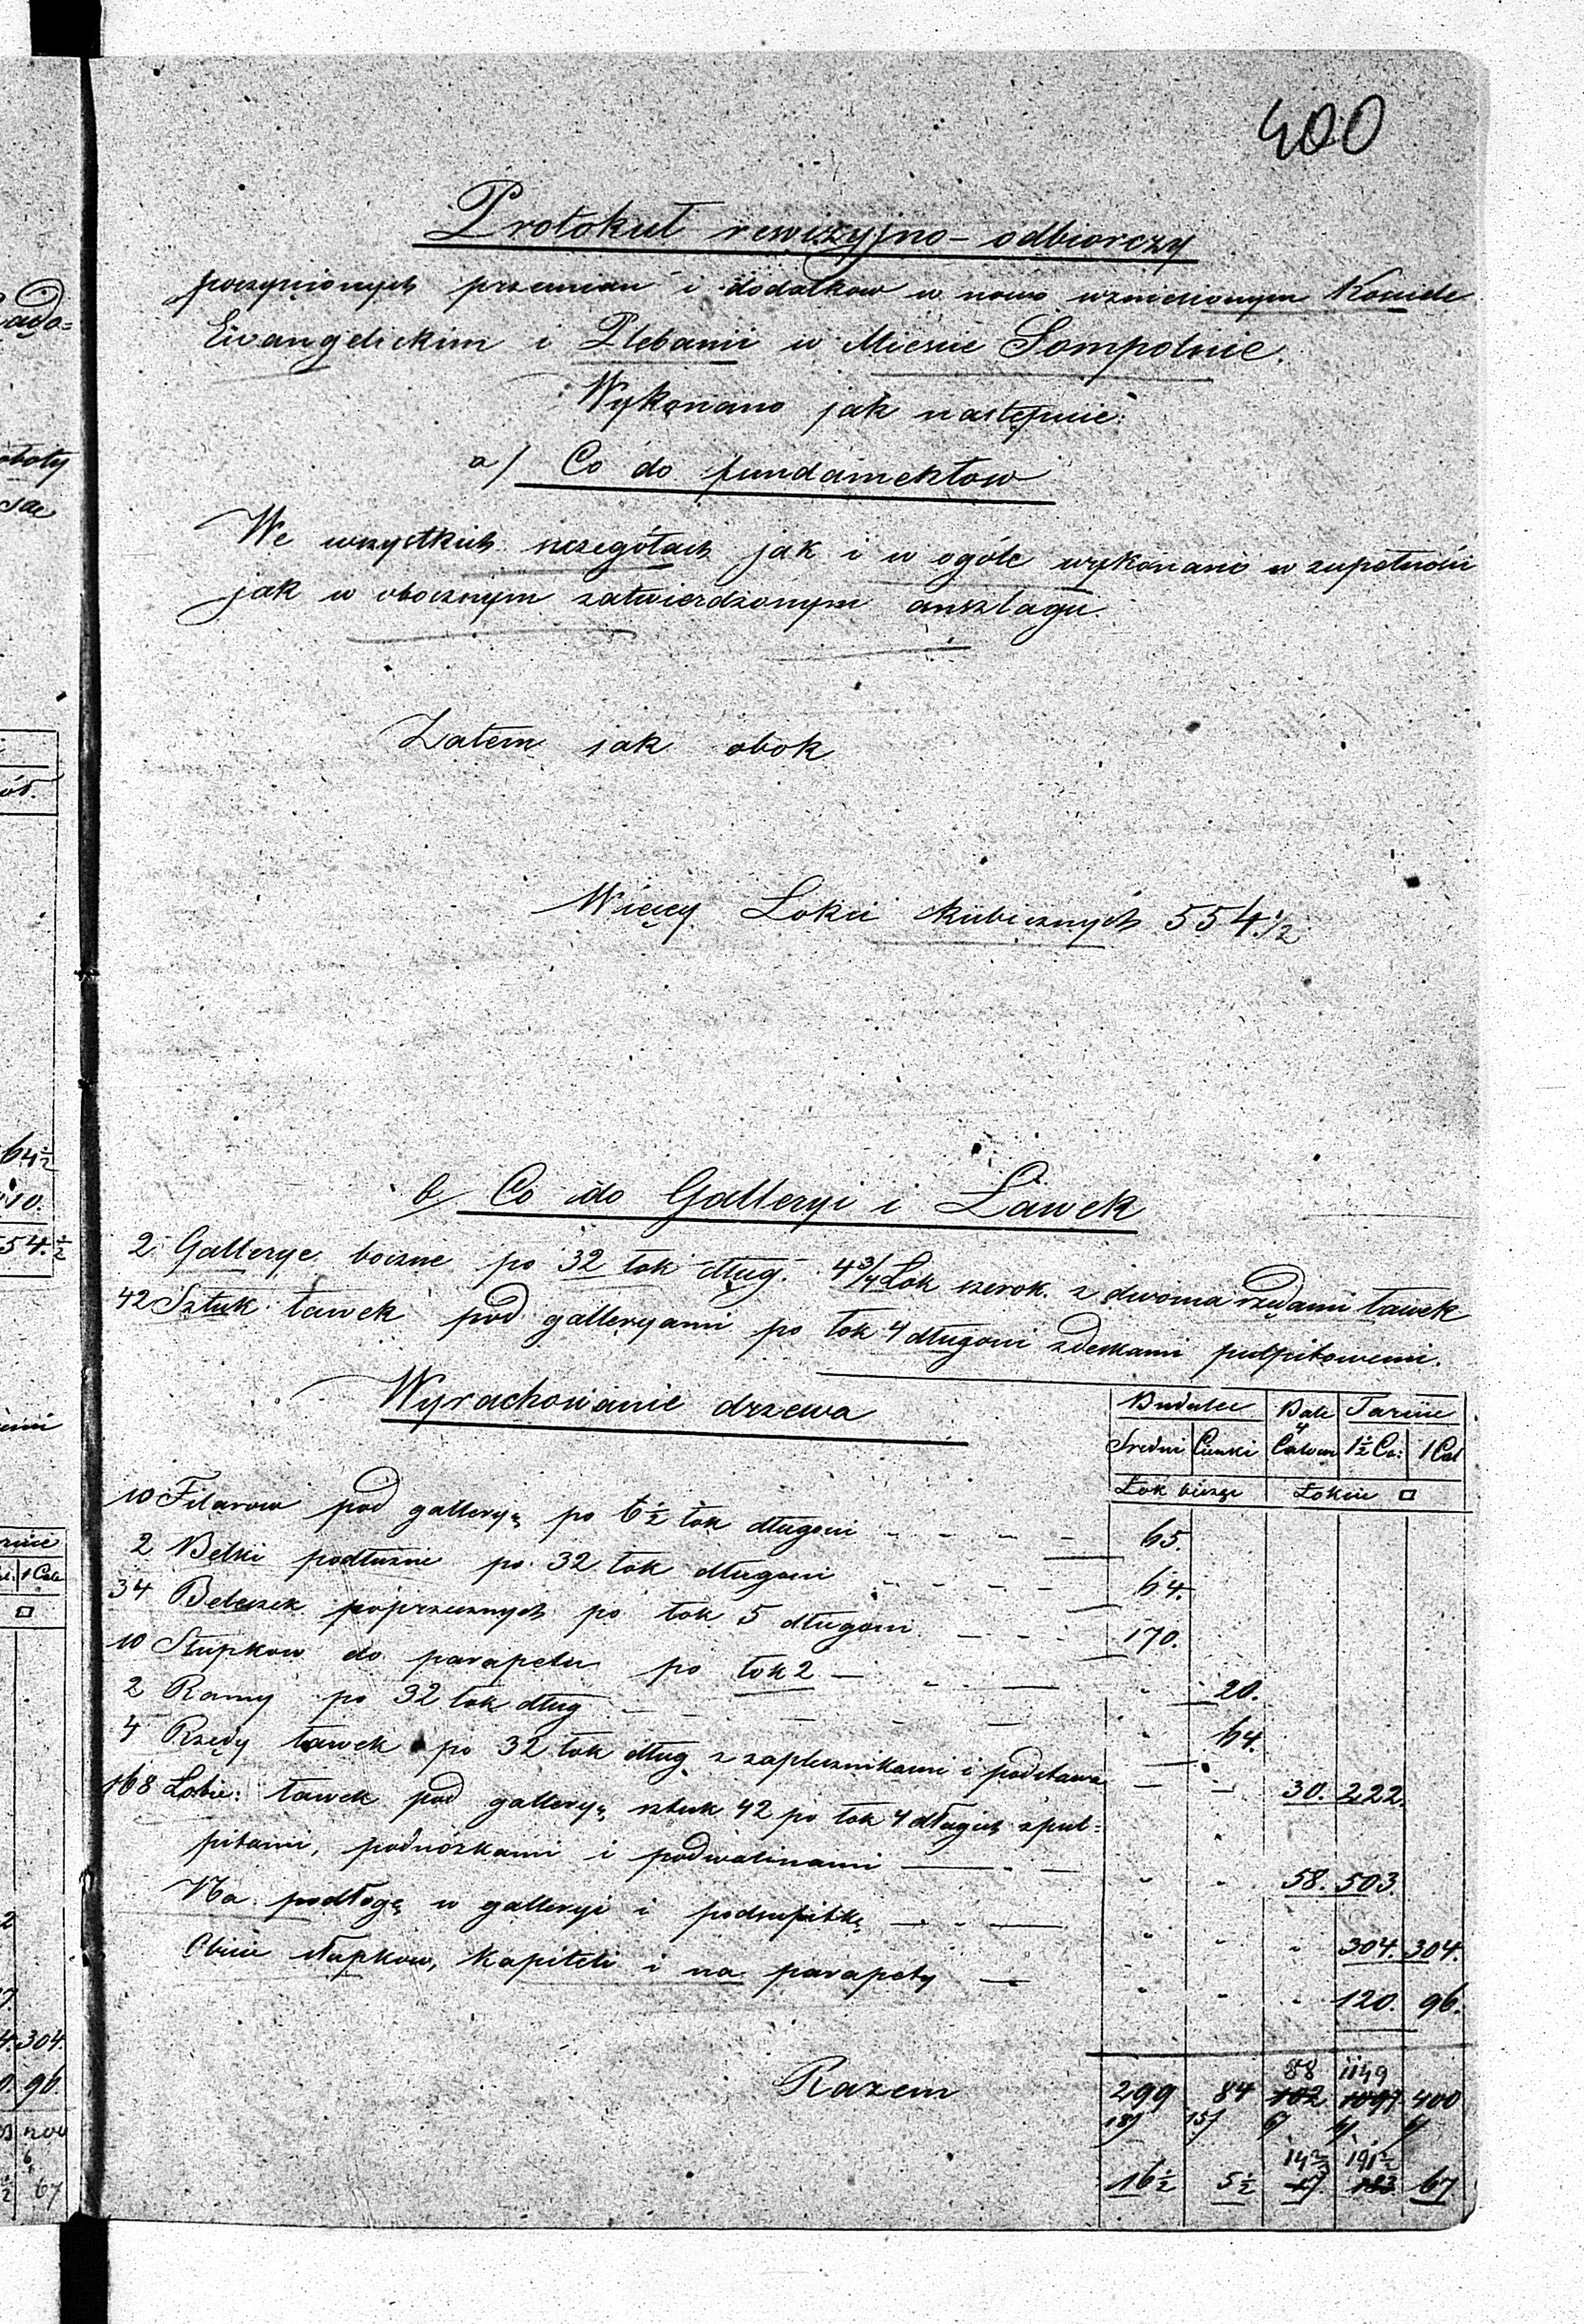 400
Protokuł rewizyjno-odbiorczy
poczynionych przemian i dodatkow w nowo wzniesionym Kosciele
Ewangelickim i Plebanii w Miescie Sompolnie.
Wykonano jak następuie:
a/ Co do fundamentow
We wszystkich szczegółach jak i w ogóle wykonano w zupełności
jak w obocznym zatwierdzonym anszlagu.
Zatem jak obok
Więcey Łokci kubicznych 554 1/2
b/ Co do Galleryi i Ławek
2 Gallerye boczne po 32 łok dług. 4 3/4 Łok szerok. z dwoma rzędami ławek
42 Sztuk ławek pod galleryami po łok 4 długosci z deskami pulpitowemi.
Wyrachowanie drzewa
Budulec Bale Tarcice
Sredni Cienki 4 Calowe 1 1/2 Ca: 1 Cal
Łok bieżące Łokcie □
10 Filarow pod galleryę po 6 1/2 łok długosci 65.
2 Belki podłużne po 32 łok długosci 64.
34 Beleczek poprzecznych po łok 5 długosci 170.
10 Słupkow do parapetu po łok 2 20.
2 Ramy po 32 łok dług 64.
4 Rzędy ławek po 32 łok dług z zaplecznikami i podstawa 30. 222.
168 Łokci: ławek pod galleryę sztuk 42 po łok 4 długich z pul=
pitami, podnóżkami i podwalinami 58. 503.
Na podłogę w galleryi i podsufitkę 304. 304.
Obicie słupkow, kapiteli i na parapety 120. 96.
88 1149
Razem 299 84 102 1097 400
18/ 15/ 6/ 6/ 6/
14 2/3 191 1/2
16 1/2 5 1/2 17 183 67